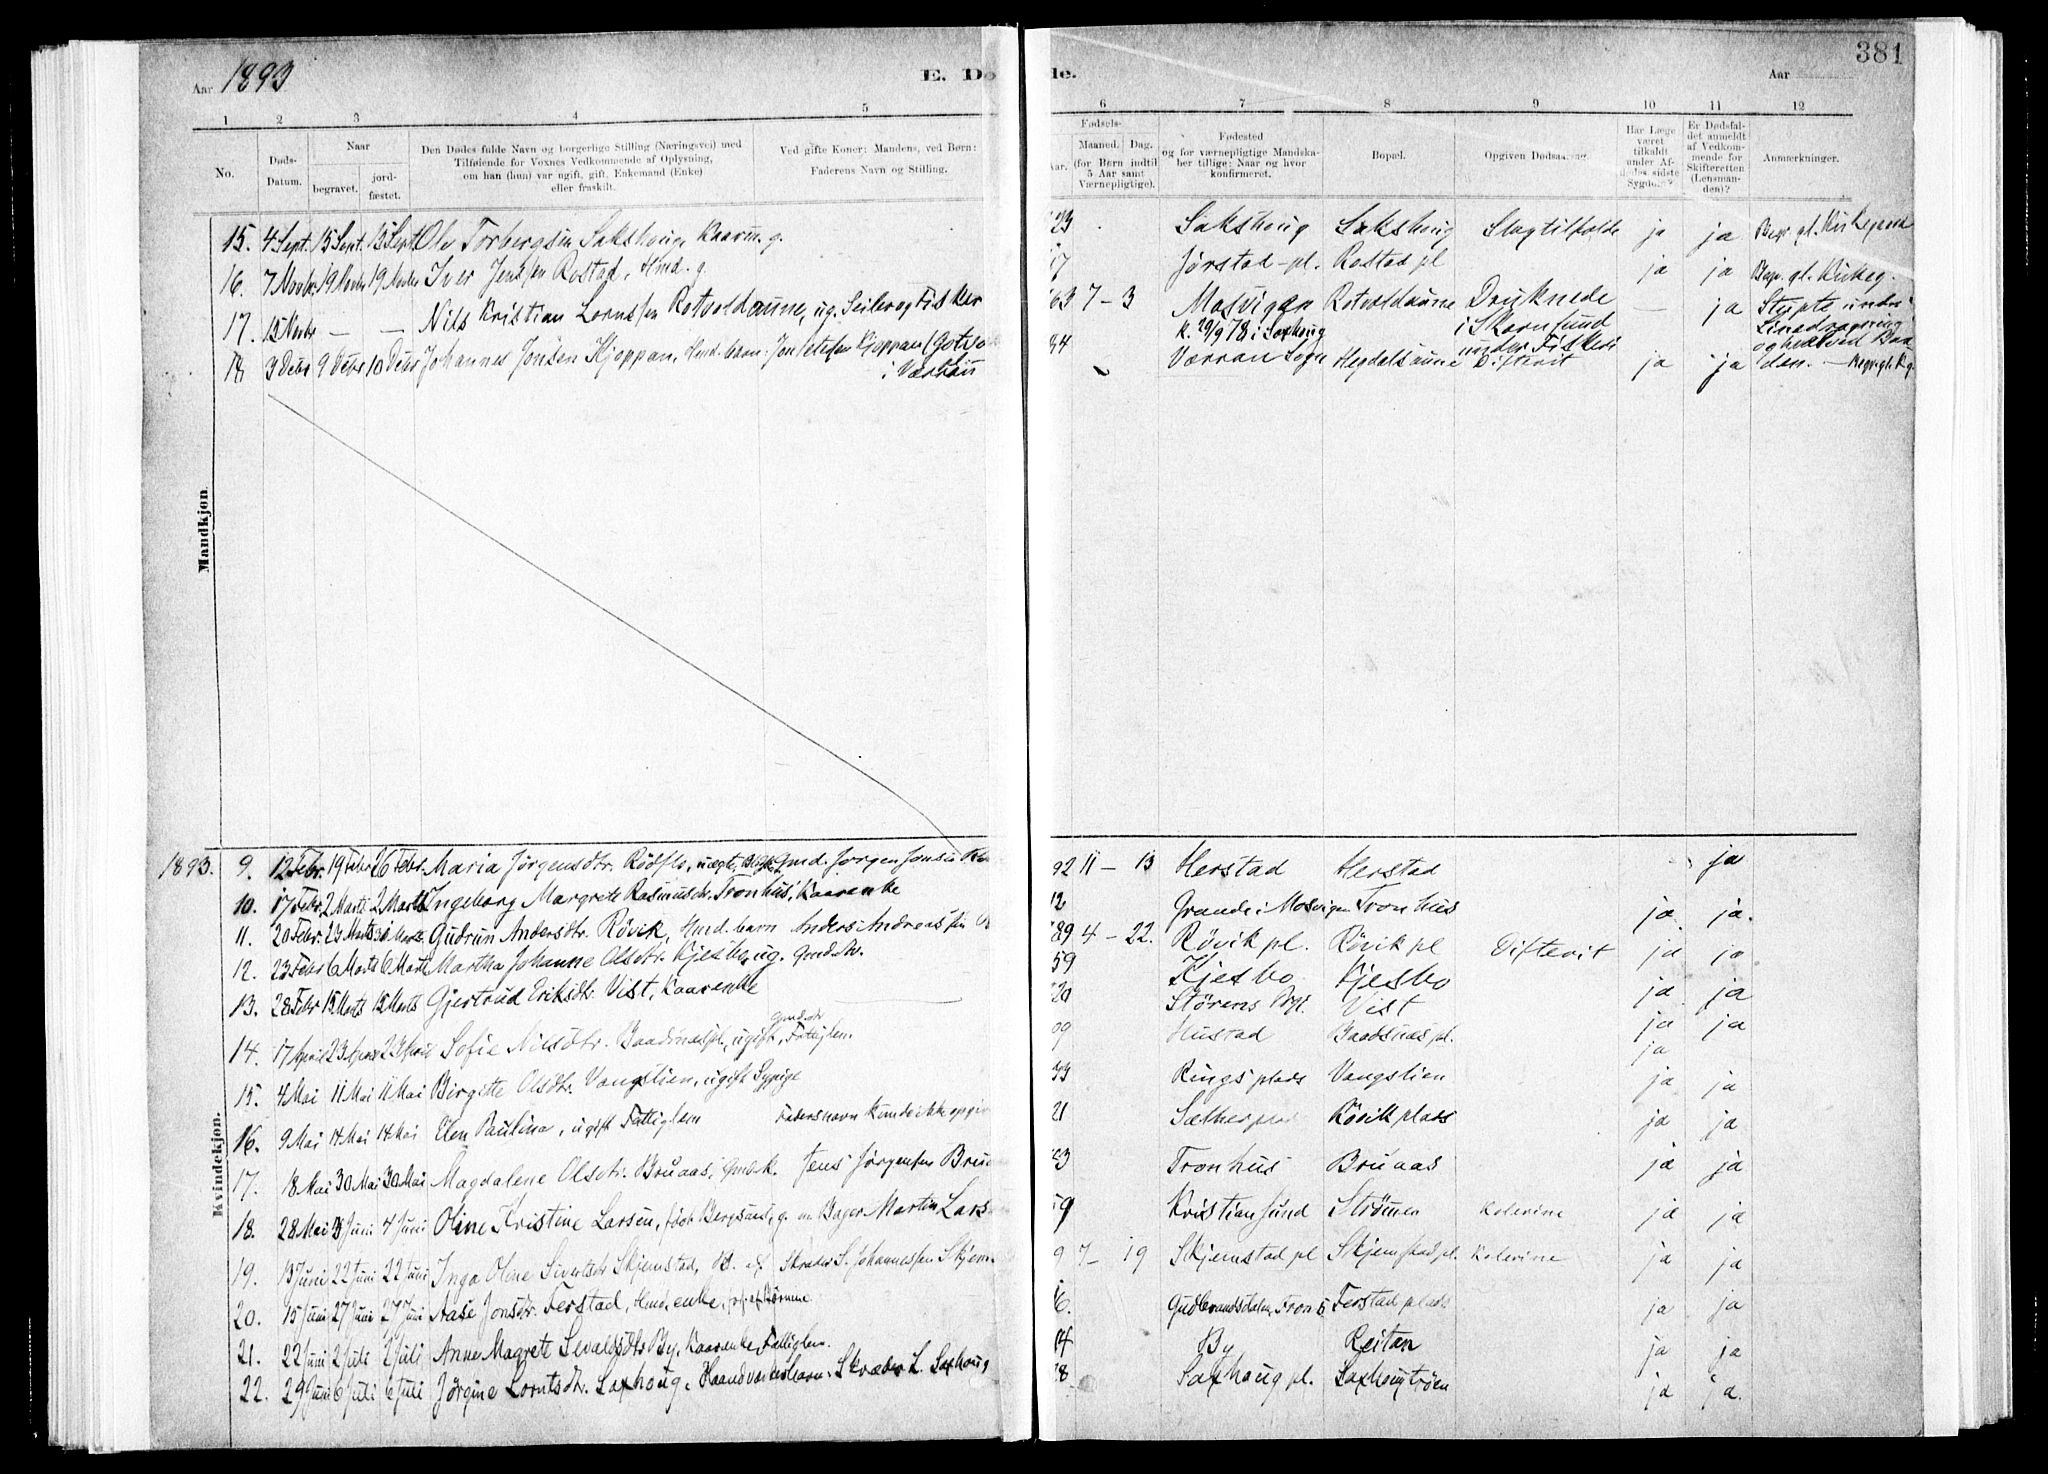 Aar 1893
E. Dø
de.
Aar
381
1 2 3 4 5 6 7 8 9 10 11 12
No.
Døds-Datum.
Naar
begravet.
jord-fæstet.
Den Dødes fulde Navn og borgerlige Stilling (Næringsvei) med
Tilføiende for Voxnes Vedkommende af Oplysning,
om han (hun) var ugift, gift, Enkemand (Enke)
eller fraskilt.
Ved gifte Koner: Mandens, ved Børn:
Faderens Navn og Stilling.
Fødsels-
Aar. Maaned. Dag.
(for Børn indtil
5 Aar samt
Værnepligtige).
Fødested
og for værnepligtige Mandska-
ber tillige: Naar og hvor
konfirmeret.
Bopæl.
Opgiven Dødsaarsag.
Har Læge
været
tilkaldt
under Af-
dødes sidste
Sygdom?
Er Dødsfal-
det anmeldt
af Vedkom-
mende for
Skifteretten
(Lensman-
den)?
Anmærkninger.
Mandkjøn
15. 4 Sept. 15 Sept. 15 Sept. Ole Torbergsen Sakshoug, Kaarm. g. 23 Sakshoug Sakshoug Slagtilfælde ja ja Begr. gl. Kirkegaard
16. 7 Novbr 19 Novbr 19 Novbr Iver Jenssen Rostad, Hmd. g. 17 Jørstad-pl. Rostad pl ja ja Begr. gl. Kirkeg.
17. 15 Novbr — — Nils Kristian Lornssen Rotvoldaune, ug. Seiler og Fisker 63 7 - 3 Mosvigen Rotvoldaune Druknede — ja Styrte under
k. 29/9 78 i Saxhoug i Skarnsund under Fiskeri
18 3 Debr 9 Debr 10 Debr Johannes Jonsen Kjoppan, Hmd. barn. Jon Petersen Kjoppan
i Værran
84 Værran Sogn Hegdalsaune Difterit ja ja den. — Begr. gl. Kg.
Kvindekjøn.
1893. 9. 12 Febr. 19 Febr 26 Febr. Maria Jørgensdtr. Gmd. Jørgen Jonsen 92 11 - 13 Herstad Herstad ja
10. 17 Febr. 2 Marts 2 Marts Ingeborg Margrete Rasmusdtr. Tronhus, Kaarenke 12 Grande i Mosvigen Tronhus ja ja.
11. 20 Febr. 23 Marts Marts Gudrun Andersdtr. Røvik, Hmd. barn Anders Andreassen 89 4 - 22. Røvik pl. Røvik pl Difterit ja ja
12. 23 Febr 6 Marts 6 Marts Martha Johanne Olsdtr. Kjesbo, ug. Gmd. dtr. 59 Kjesbo Kjesbo ja ja
13. 28 Febr 15 Marts 15 Marts Gjertrud Eriksdtr. Vist, Kaarenke 20 Størens Prgj. Vist ja ja
14. 17 April 23 April 23 April Sofie Nilsdtr. Baadsnæspl., ugift, Gmd. dtr Fattiglem. 09 Hustad Baadsnæs pl. ja
15. 4 Mai 11 Mai 11 Mai Birgitte Olsdtr. Vangstien, ugift Sypige 33 Rings plads Vangstien ja ja
16. 9 Mai 14 Mai 14 Mai Elen Paulina, ugift Fattiglem Fadersnavn kunde ikke opgiv 21 Sætherplad Røvik plads ja ja
17. 18 Mai 30 Mai 30 Mai Magdalene Olsdtr. Bruaas, Gmd. k. Jens Jørgensen Bruaas 33 Tronhus Bruaas ja ja
18. 28 Mai 3 Juni 4 Juni Oline Kristine Larsen, født Bergsnes, g. m Bager Martin Larsen 59 Kristiansund Strømmen Kolerine ja ja
19. 13 Juni 22 Juni 22 Juni Inga Oline Sivertsdtr Skjemstad, Skræder S. Johannessen Skjem 9 7 - 19 Skjemstad pl Skjemstad pl. Kolerine ja ja
20. 15 Juni 27 Juni 27 Juni Aase Jonsdtr. Ferstad, Hmd. enke, 6. Gudbrandsdalen, Fron Ferstad plads ja ja
21. 22 Juni 2 Juli 2 Juli Anne Magrete Sevaldsdtr By, Kaarenke, Fattiglem. 14 By Reitan ja ja
22. 29 Juni 6 Juli 6 Juli Jørgine Lorntsdtr. Saxhoug, Haandværkerbarn. Skræder L. Saxhoug 8 Saxhoug pl. Saxhougtrøen ja ja.